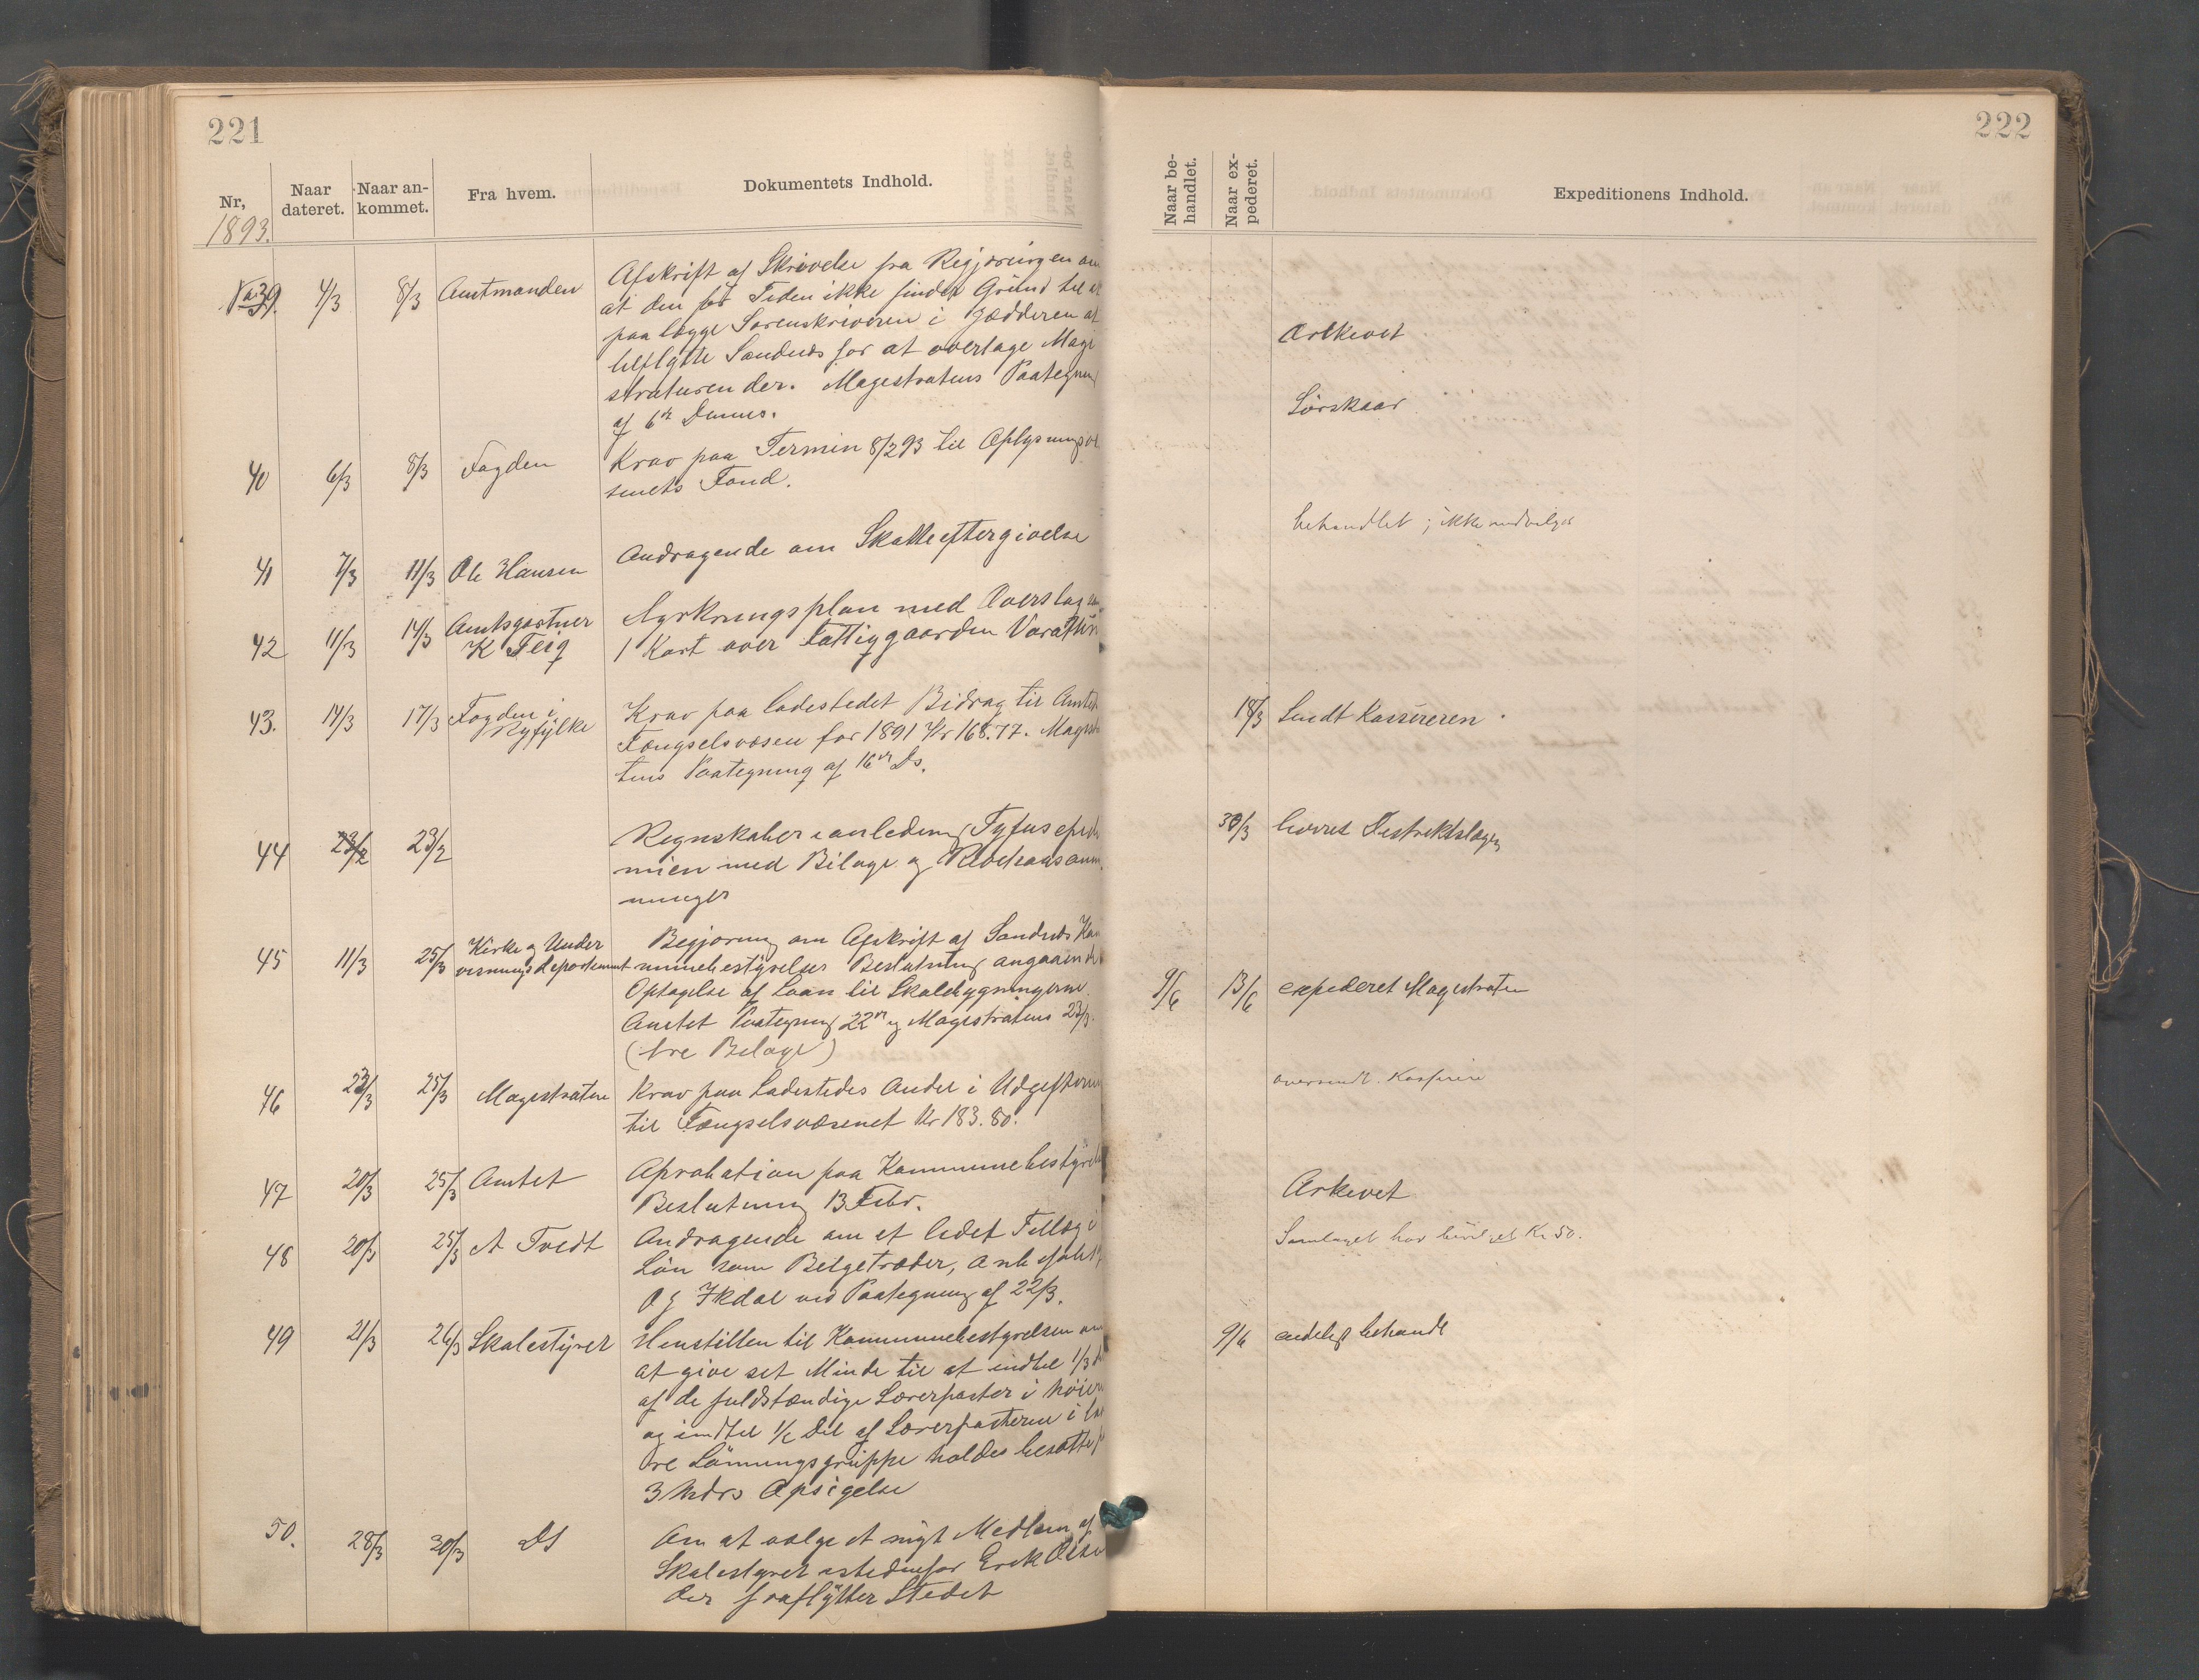 221
Nr,
Naar dateret.
Naar ankommet.
Fra hvem.
Dokumentets Indhold.
1893.
No 39. 4/3 8/3 Amtmanden Afskrift af Skrivelse fra Regjeringen om
at den for Tiden ikke finder Grund til at
paalægge Sorenskriveren i Jædderen at
tilflytte Sandnes for at overtage Magi
straturen der. Magistratens Paategning
af 6te Dennes.
40 6/3 8/3 Fogden Krav paa Termin 8/2 93 til Oplysningsvæ
senets Fond.
41 7/3 11/3 Ole Hansen Andragende om Skatteeftergivelse
42 11/3 14/3 Amtsgartner Dyrkningsplan med Overslag
K Feig 1 Kart over Fattiggaarden Varatun
43. 14/3 17/3 Fogden i Krav paa Ladestedet Bidrag til Amtets
Ryfylke Fængselsvæsen for 1891 Kr 168.77. Magistra
tens Paategning af 16de Ds.
44 23/2 23/2 Regnskaber i anledning Tyfusepide
mien med Bilage og anm
ninger
45 11/3 25/3 Kirke og Under Begjæring om Afskrift af Sandnes Kom
visningsdepartement munebestyrelses Beslutning angaaende
Optagelse af Laan til Skolebygningerne.
Amtet Paategning 22de og Magistratens 23/3.
(tre Bilage)
46 23/3 25/3 Magistraten Krav paa Ladestedes Andel i Udgifterne
til Fængselsvæsenet Kr 183.80.
47 20/3 25/3 Amtet Aprobation paa Kommunebestyrels
Beslutning 13 Febr.
48 20/3 25/3 A Tvedt Andragende om et lidet Tillæg i
Løn som Belgetræder, Anbefalet
O G Ikdal ved Paategning af 22/3.
49 21/3 26/3 Skolestyret Henstillen til Kommunebestyrelsen om
at give set Minde til at indtil 1/3 d
af de fuldstændige Lærerposter i høier
og indtil 1/2 Del af Lærerposterne i lav
re Lønningsgruppe holdes besatte p
3 Mdrs Opsigelse
50. 28/3 30/3 Ds Om at vælge et nyt Medlem af
Skolestyret istedenfor Erik Olsen
der fraflytter Stedet
222
Naar behandlet.
Naar expederet.
Expeditionens Indhold.
Arkevet
Sørskaar
behandlet; ikke indvilget
18/3 Sendt Kassereren.
30/3 leveret Distriktslægen
9/6 13/6 expederet Magistraten
oversendt. Kasserer
Arkevet
Samlaget har bevilget Kr 50.
9/6 endeligt behandl